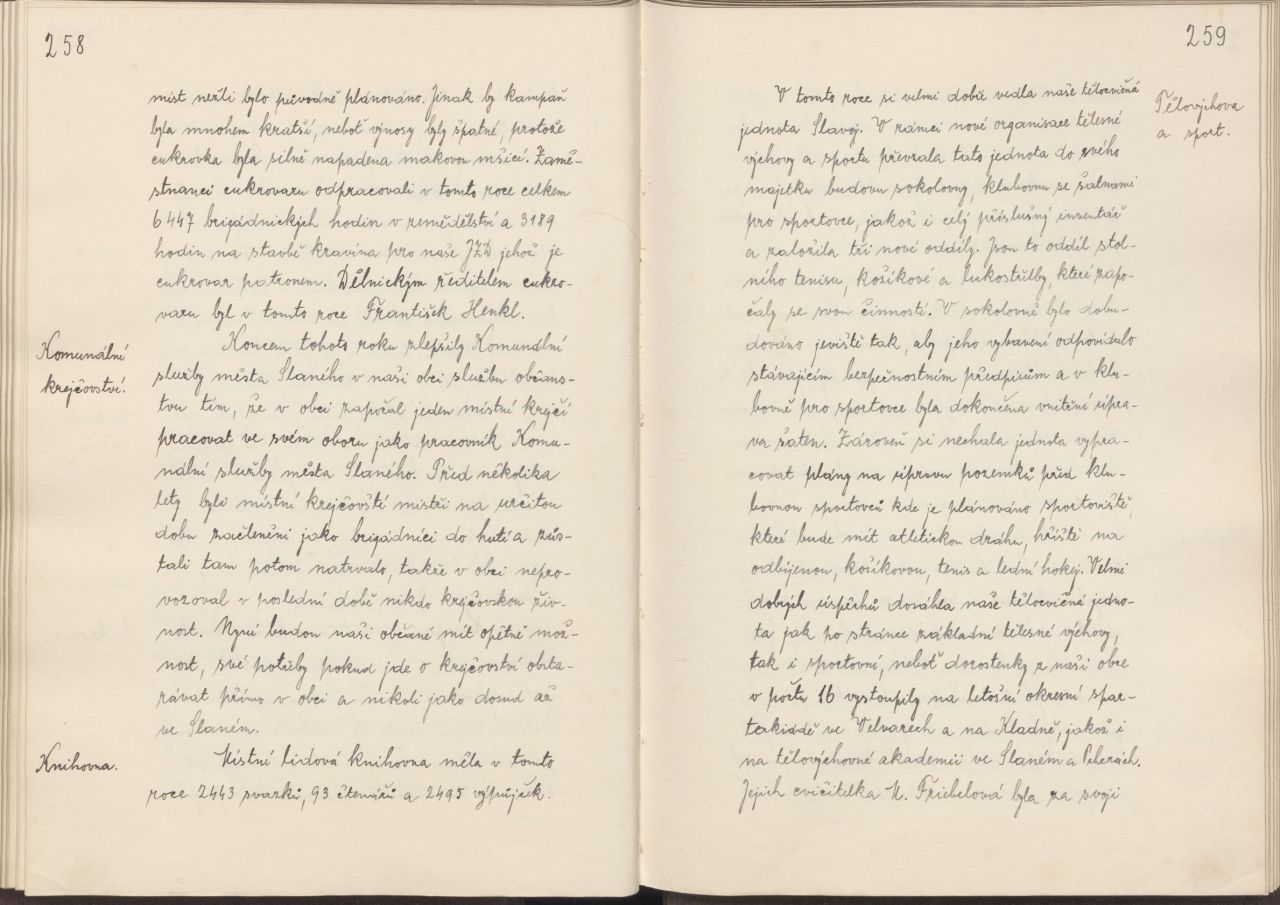 258
míst nežli bylo původně plánováno. Jinak by kampaň
byla mnohem kratší, neboť výnosy byly špatné, protože
cukrovka byla silně napadena makovou mšicí. Zamě-
stnanci cukrovaru odpracovali v tomto roce celkem
6 447 brigádnických hodin v zemědělství a 3189
hodin na stavbě kravína pro naše JZD jehož je
cukrovar patronem. Dělnickým ředitelem cukro-
varu byl v tomto roce František Henkl.
Komunální
krejčovství.
Koncem tohoto roku zlepšily Komunální
služby města Slaného v naší obci službu občans-
tvu tím, že v obci započal jeden místní krejčí
pracovat ve svém oboru jako pracovník Komu-
nální služby města Slaného. Před několika
lety byli místní krejčovští mistři na určitou
dobu začleněni jako brigádníci do hutí a zůs-
tali tam potom natrvalo, takže v obci nepro-
vozoval v poslední době nikdo krejčovskou živ-
nost. Nyní budou naši občané mít opětně mož-
nost, své potřeby pokud jde o krejčovství obsta-
rávat přímo v obci a nikoli jako dosud až
ve Slaném.
Knihovna.
Místní lidová knihovna měla v tomto
roce 2443 svazků, 93 čtenářů a 2495 výpůjček.
259
Tělovýchova
a sport.
V tomto roce si velmi dobře vedla naše tělocvičná
jednota Slavoj. V rámci nové organisace tělesné
výchovy a sportu převzala tato jednota do svého
majetku budovu sokolovny, klubovnu se šatnami
pro sportovce, jakož i celý příslušný inventář
a založila tři nové oddíly. Jsou to oddíl stol-
ního tenisu, košíkové a lukostřelby, které zapo-
čaly se svou činností. V sokolovně bylo dobu-
dováno jeviště tak, aby jeho vybavení odpovídalo
stávajícím bezpečnostním předpisům a v klu-
bovně pro sportovce byla dokončena vnitřní úpra-
va šaten. Zároveň si nechala jednota vypra-
covat plány na úpravu pozemků před klu-
bovnou sportovců kde je plánováno sportoviště,
které bude mít atletickou dráhu, hřiště na
odbíjenou, košíkovou, tenis a lední hokej. Velmi
dobrých úspěchů dosáhla naše tělocvičná jedno-
ta jak po stránce základní tělesné výchovy,
tak i sportovní, neboť dorostenky z naší obce
v počtu 16 vystoupily na letošní okresní spar-
takiádě ve Velvarech a na Kladně, jakož i
na tělovýchovné akademii ve Slaném a Peherách.
Jejich cvičitelka M. Friebelová byla za svoji